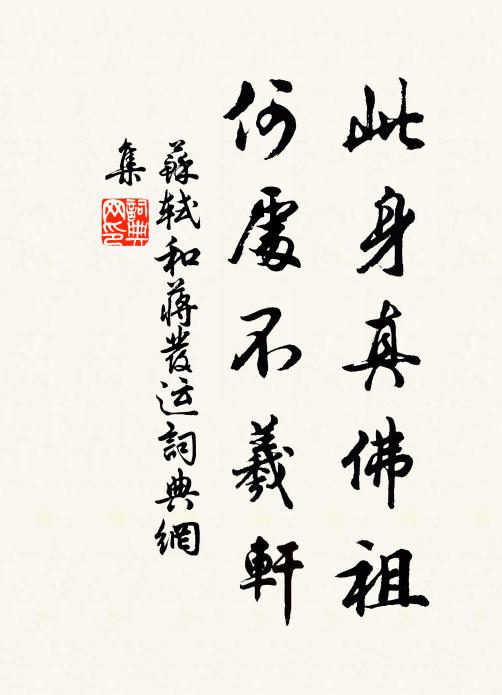 此身真佛祖
何處不羲軒
蘇軾和蔣發运詞典網
集
詞典
网印